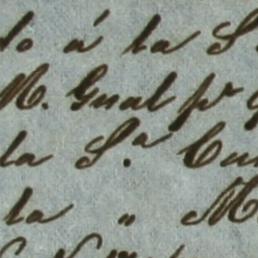 to á la S
M. Gual pr
la S.a Cu
la " M